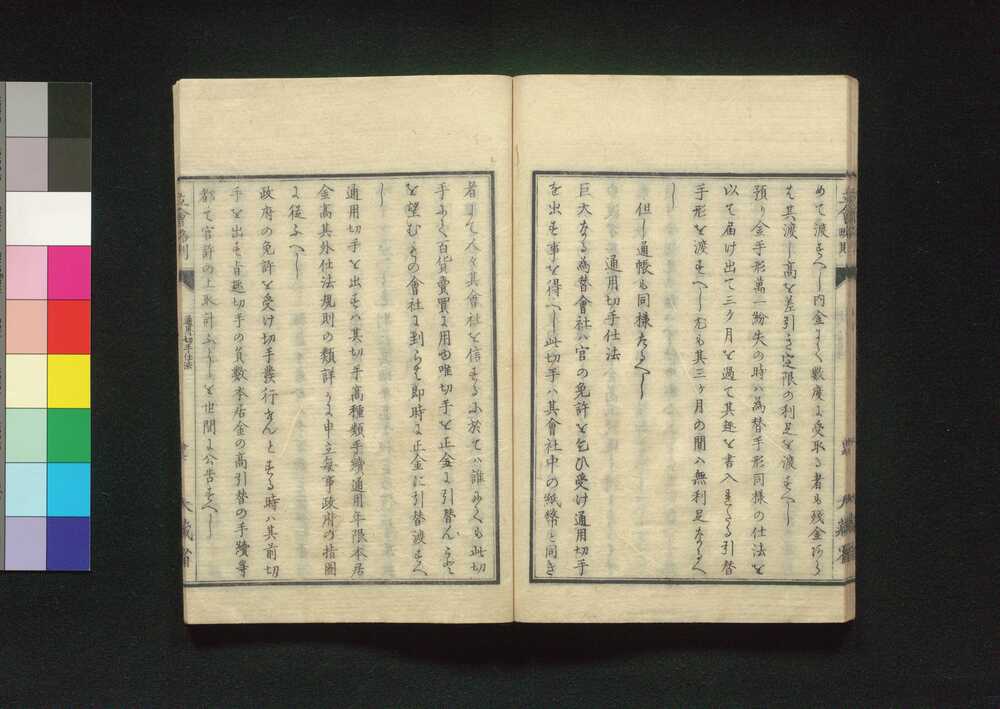 めて渡すへし内金にて数度に受取る者も残金あら
は其渡し高を差引き定限の利足を渡すへし
預り金手形萬一紛失の時ハ為替手形同様の仕法を
以て届け出て三ヶ月を過て其趣を書入まてたる引替
手形を渡すへし尤も其三ヶ月の間ハ無利足たるへ
し
但し通帳も同様たるへし
通用切手仕法
巨大なる為替會社ハ官の免許を乞ひ受け通用切手
を出す事を得へし此切手ハ其會社中の紙幣と同き
者にて人々其會社を信するに於てハ誰にても此切
手にて百貨賣買に用ゐ唯切手を正金に引替ん
を望むもの會社に到らハ即時に正金に引替渡すへ
し
通用切手を出すハ其切手高種類手續通用年限本居
金高其外仕法規則の類詳かに申立毎事政府の指圖
に従ふへし
政府の免許を受け切手發行せんとする時ハ其前切
手を出す旨趣切手の員數本居金の高引替の手續等
都て官許の上取計ふよしを世間に公告すへし
立會略則
通用切手仕法
大藏省
立會略則
大藏省